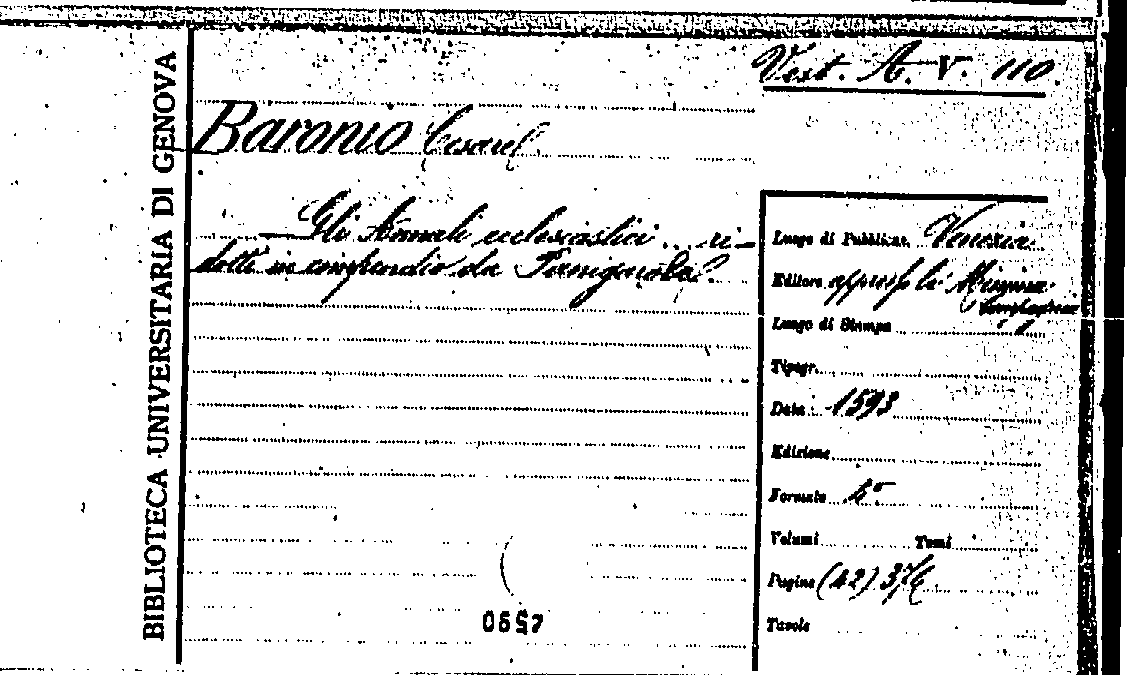 BIBLIOTECA UNIVERSITARIA DI GENOVA
Vest. A. V. 110.
Baronio Cesare
Gli Annali ecclesiastici ... ri-
dotti in compendio da Panigarola.
Luogo di Pubblicaz. Venezia
Editore appresso li
Compagnia
Luogo di Stampa
Tipogr.
Data 1593
Edizione
Formato 4°
Volumi Tomi
Pagine (42) 376
Tavole
0659